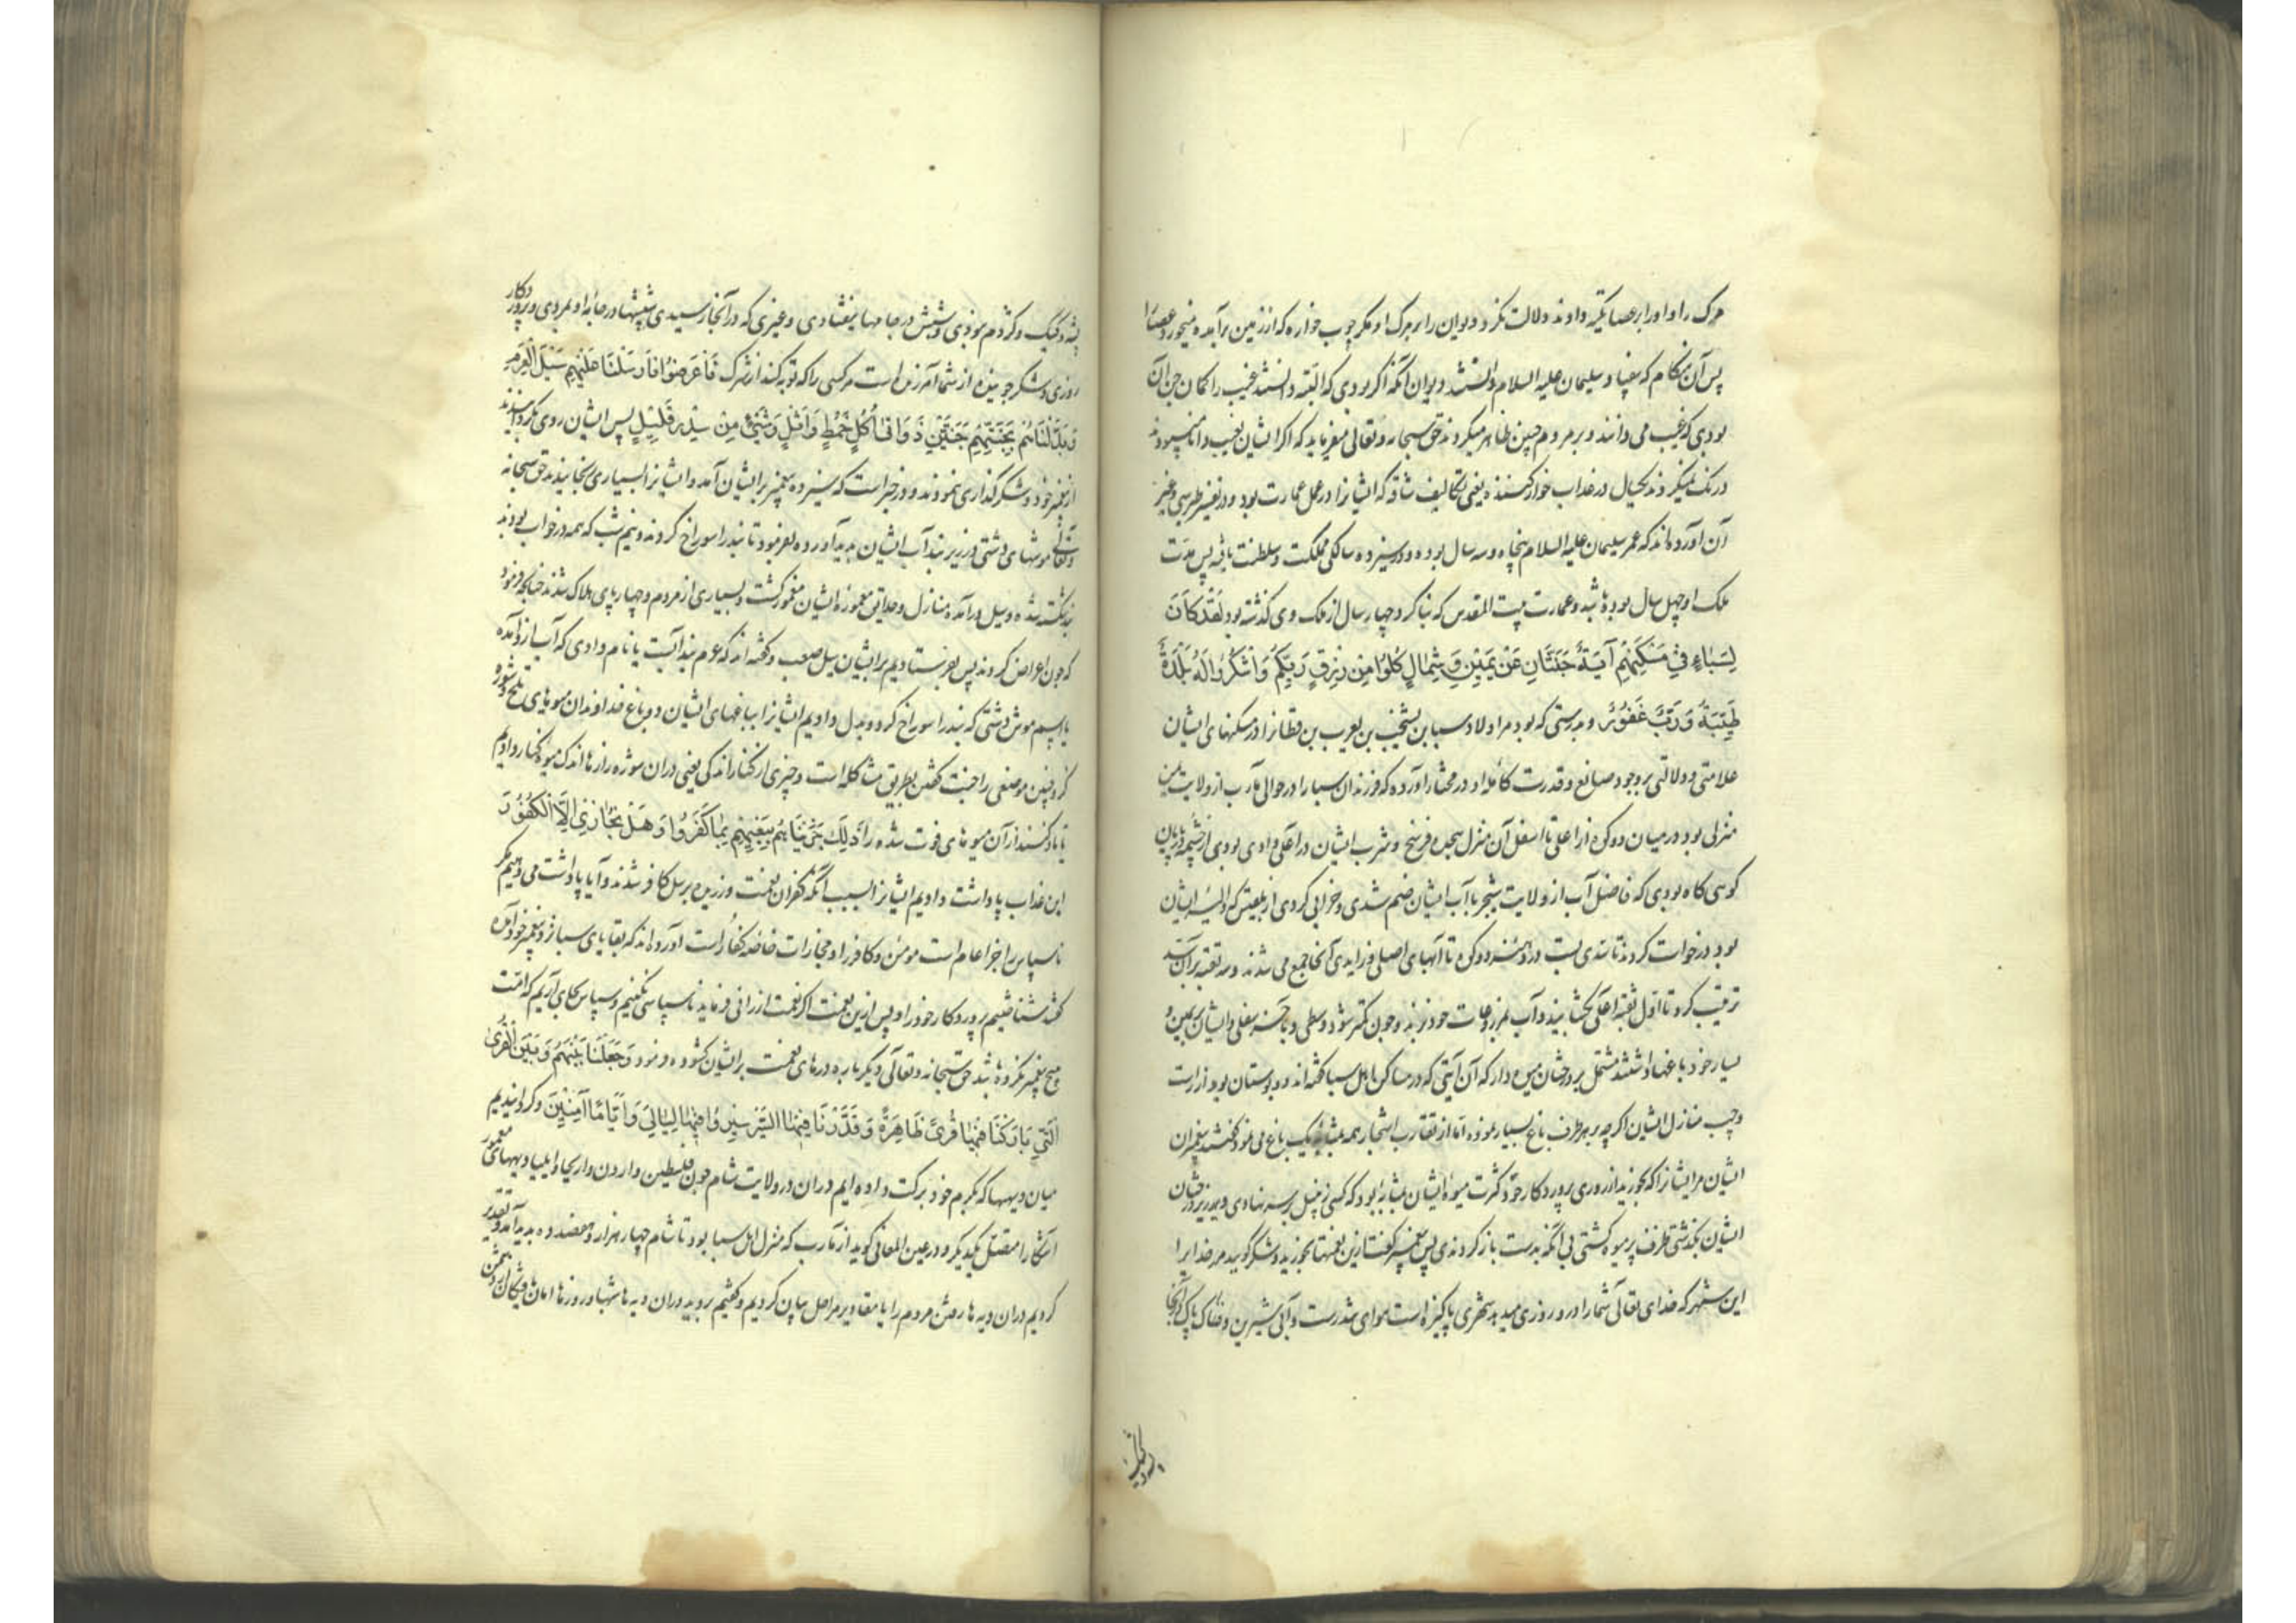 مرک را و او را بر عصا تکیه دادند دلالت نکرد دیوان را بر مرک او مکر چوب خواره که از زمین برآمده میخورد عصا را
پس آن هنکام که بیفتاد سلیمان علیه السلام دانستند دیوان آنکه اکر بودی که البته دانستند غیب را کمان جن آن
بودی که غیب می دانند و بر مردم چنین ظاهر میکردند حق سبحانه و تعالی میفرماید که اکر ایشان بغیب دانا میبودند
درنک نمیکردند یکسال در عذاب خوارکننده یعنی تکالیف شاقه که ایشانرا در عمل عمارت بود و در تفسیر طبرسی و غیر
آن آورده‌اند که عمر سلیمان علیه السلام پنجاه و سه سال بوده و در سیزده سالکی مملکت و سلطنت یافته پس مدت
ملک او چهل سال بوده باشد و عمارت بیت المقدس که بنا کرد چهار سال از ملک وی کذشته بود لَقَدْ كَانَ
لِسَبَاءٍ فِي مَسْكَنِهِمْ آيَةٌ جَنَّتَانِ عَنْ يَمِينٍ وَشِمَالٍ كُلُوا مِنْ رِزْقِ رَبِّكُمْ وَاشْكُرُوا لَهُ بَلْدَةٌ
طَيِّبَةٌ وَرَبٌّ غَفُورٌ و بدرستی که بود مر اولاد سبا بن یشجب بن یعرب بن قحطانرا در مسکنهای ایشان
علامتی و دلالتی بر وجود صانع و قدرت کامله او در مختار آورده که فرزندان سبا را در حوالی مآرب از ولایت یمن
منزلی بود در میان دو کوه از اعلی تا اسفل آن منزل هجده فرسخ و شرب ایشان در اعلی وادی بودی از چشمه در پایان
کوهی کاه بودی که فاضل آب از ولایت شحر با آب ایشان ضم شدی و خرابی کردی از بلقیس که والیه ایشان
بود درخواست کردند تا سدی بست در دهنه دو کوه تا آبهای اصلی و زایدی آنجا جمع می شدند و سه ثقبه بر آن سد
ترتیب کرد تا اول ثقبه اعلی بکشایند و آب بمزروعات خود برند و چون کمتر شود وسطی و بآخر سفلی و ایشان بر یمین و
یسار خود باغها داشتند مشتمل بر درختان میوه دار که آن آیتی که در مساکن اهل سبا کفته اند دو بوستان بود از راست
و چپ منازل ایشان اکرچه بر هر طرف باغ بسیار بوده اما از تقارب اشجار همه بمثابه یک باغ می نمود کفتند پیغمبران
ایشان مر ایشانرا که بخورید از روزی پروردکار خود کثرت میوه ایشان بمثابه بود که کسی زنبیل بر سر نهادی و در زیر درختان
ایشان بکذشتی ظرف پر میوه کشتی بی آنکه بدست باز کردندی پس پیغمبر کفت ازین نعمتها بخورید و شکر کویید مر خدایرا
این شهر که خدای تعالی شما را در و روزی میدهد شهری پاکیزه است هوای تندرست و آبی شیرین و خاک پاک و آنجا
پشه و کیک
پشه و کیک و کژدم موذی و شپش در جامها نیفتادی و غیری که در آنجا رسیدی شپشها در جامه او بمردی و پروردکار
روزی و شکر جوینده از شما آمرزنده است مر کسی را که توبه کند از شرک فَأَعْرَضُوا فَأَرْسَلْنَا عَلَيْهِمْ سَيْلَ الْعَرِمِ
وَبَدَّلْنَاهُمْ بِجَنَّتَيْهِمْ جَنَّتَيْنِ ذَوَاتَىْ أُكُلٍ خَمْطٍ وَأَثْلٍ وَشَيْءٍ مِنْ سِدْرٍ قَلِيلٍ پس ایشان روی بکردانیدند
از پیغمبر خود و شکرکذاری ننمودند و در خبر است که سیزده پیغمبر بر ایشان آمد و ایشانرا بسیاری برنجانیدند حق سبحانه
وتعالی موشهای دشتی در زیر بند آب ایشان پدید آورده بفرمود تا بند را سوراخ کردند و نیم شب که همه در خواب بودند
بند شکسته شده و سیل درآمده منازل و حدایق معموره ایشان مغمور کشت و بسیاری از مردم و چهارپای هلاک شدند چنانچه فرمود
که چون اعراض کردند پس بفرستادیم بر ایشان سیل صعب و کفته اند که عرم بند آبست یا نام وادی که آب از و آمده
یا اسم موش دشتی که بند را سوراخ کرد و بدل دادیم ایشانرا بباغهای ایشان دو باغ خداوندان میوهای تلخ و شوره
کز و چنین موضعی را جنت کفتن بطریق مشاکله است و چیزی از کنار اندکی یعنی دران شوره زارها اندک میوه کنار دادیم
تا یاد کنند از آن میوهای فوت شده را ذَلِكَ جَزَيْنَاهُمْ بِبَغْيِهِمْ بِمَا كَفَرُوا وَهَلْ نُجَازِي إِلَّا الْكَفُورَ
این عذاب پاداشت دادیم ایشانرا بسبب آنکه کفران نعمت ورزیدند برسل کافر شدند و آیا پاداشت می دهیم مکر
ناسپاس را جزا عام است مومن و کافر را و مجازات خاصه کفار است آورده‌اند که بقایای سبا نزد پیغمبر خود آمده
کفتند شناختیم پروردکار خود را و پس ازین نعمت اکر نعمت ارزانی فرماید ناسپاسی نکنیم و سپاس بجای آریم که امت
هیچ پیغمبر نکرده باشد حق سبحانه وتعالی دیکر باره درهای نعمت بر ایشان کشوده فرمود وَجَعَلْنَا بَيْنَهُمْ وَبَيْنَ الْقُرَى
الَّتِي بَارَكْنَا فِيهَا قُرًى ظَاهِرَةً وَقَدَّرْنَا فِيهَا السَّيْرَ سِيرُوا فِيهَا لَيَالِيَ وَأَيَّامًا آمِنِينَ و کردانیدیم
میان دیهها که بکرم خود برکت داده ایم دران در ولایت شام چون فلسطین و اردن و اریحا و ایلیا دیههای معمور
آشکارا متصل بیکدیکر و در عین المعانی کوید از مآرب که منزل اهل سبا بود تا شام چهار هزار و هفصد ده پدید آمد و تقدیر
کردیم دران دیه ها رفتن مردم را با مقادیر مراحل بیان کردیم و کفتیم بروید دران دیه ها شبها و روزها امان یافتکان از دشمن